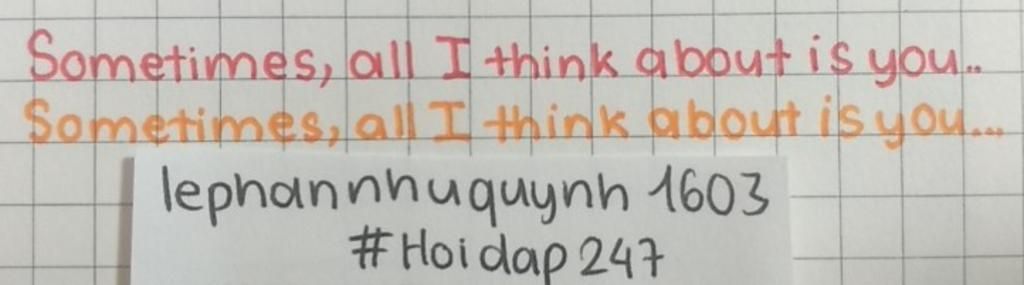 Sometimes, all I think about is you..
Sometimes, all I think about is you...
lephannhuquynh 1603
#Hoidap 247